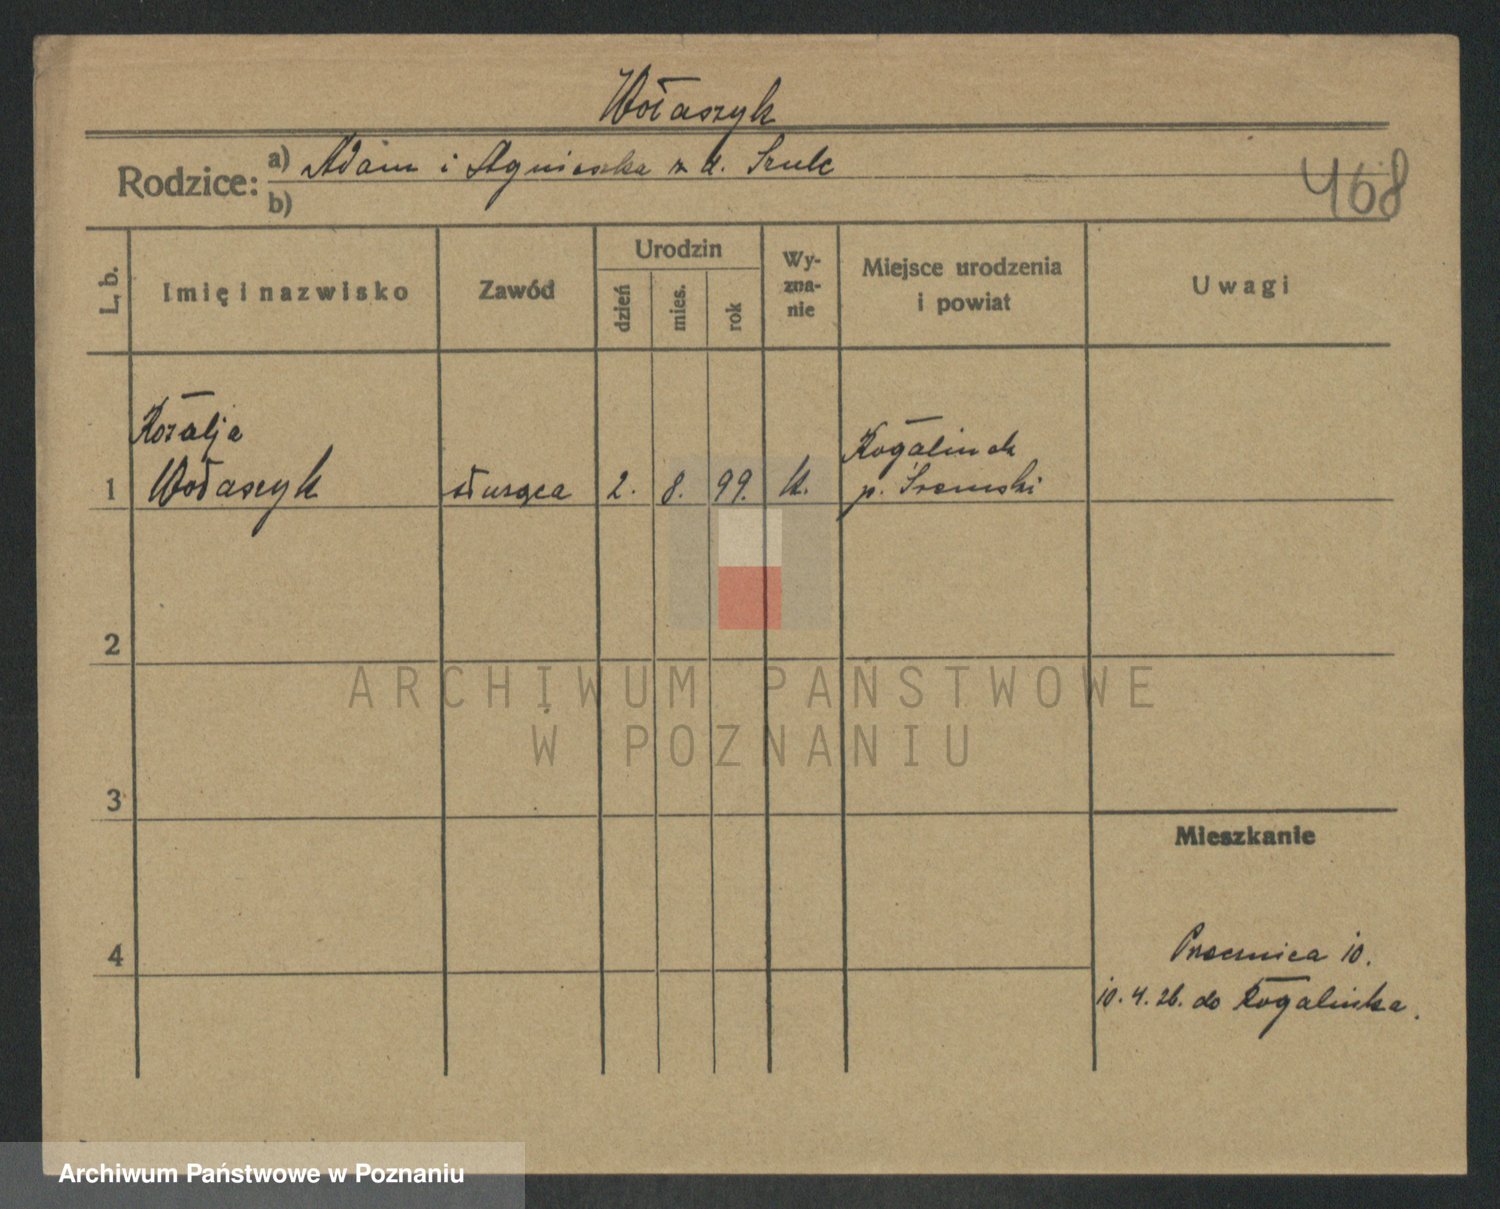 Wołaszyk
Rodzice: a) Adam i Agnieszka z d. Szulc
b)
468
L. b.
Imię i nazwisko
Zawód
Urodzin
dzień
mies.
rok
Wy-
zna-
nie
Miejsce urodzenia
i powiat
Uwagi
Rozalja
Rogalinek
1 Wołaszyk służąca 2. 8. 99. k. p. Śremski
2
ARCHIWUM PAŃSTWOWE
W POZNANIU
3
Mieszkanie
4
Przecznica 10.
10. 4. 26. do Rogalinka.
Archiwum Państwowe w Poznaniu